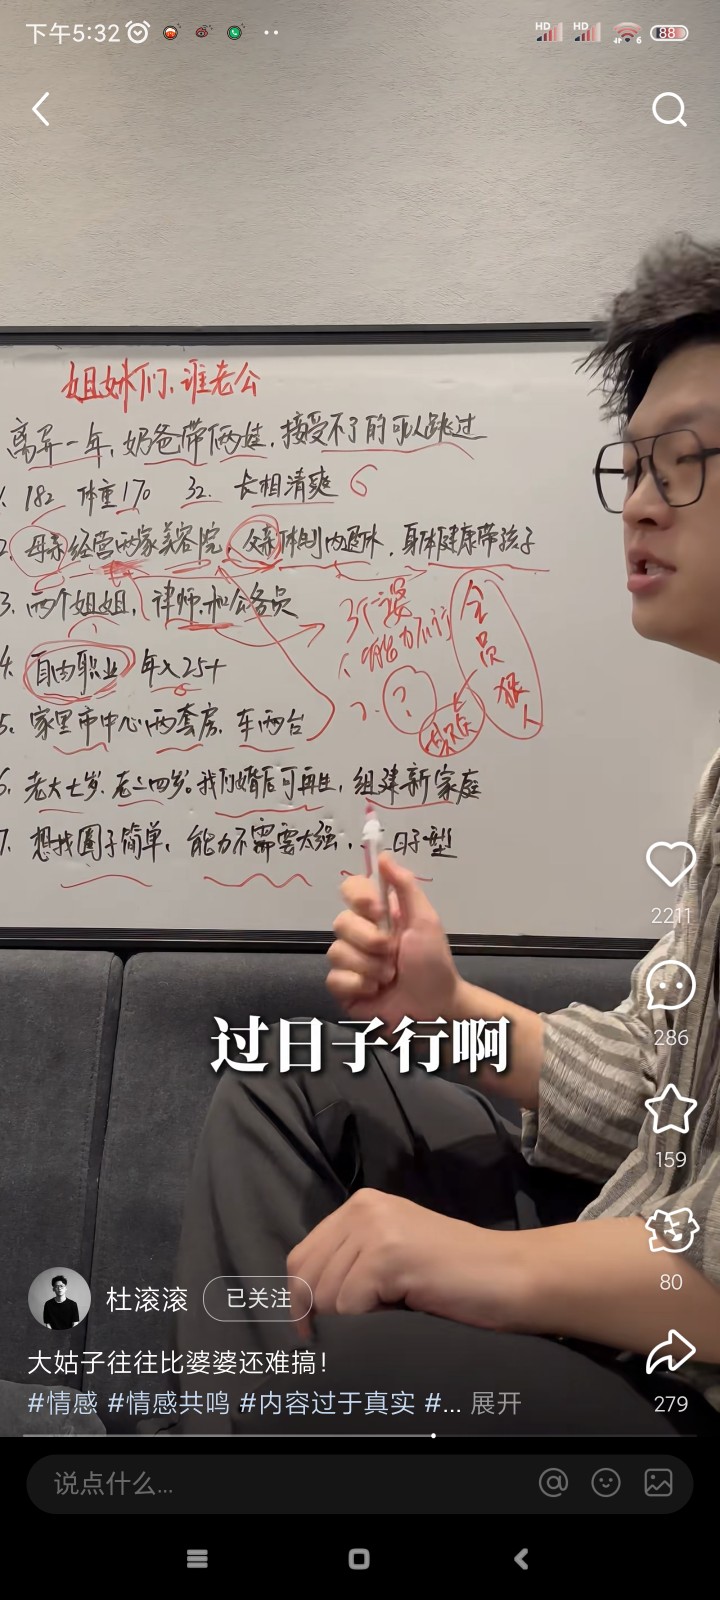 下午5:32
HD
HD
6
88
姐妹们、谁老公
离异一年,奶爸带俩娃,接受不了的可以跳过
1. 182 体重170 32. 长相清爽 6
2. 母亲经营两家美容院、父亲体制内退休,身体健康带孩子
3. 两个姐姐,律师和公务员
3个婆
全员狠人
1、能力不行
4. 自由职业 年入25+
2. ?
5. 家里市中心两套房、车两台
6. 老大七岁、老二四岁。我们婚后可再生,组建新家庭
7. 想找圈子简单,能力不需要太强,日子型
2211
过日子行啊
286
159
80
杜滚滚 已关注
大姑子往往比婆婆还难搞!
#情感 #情感共鸣 #内容过于真实 #... 展开
279
说点什么...